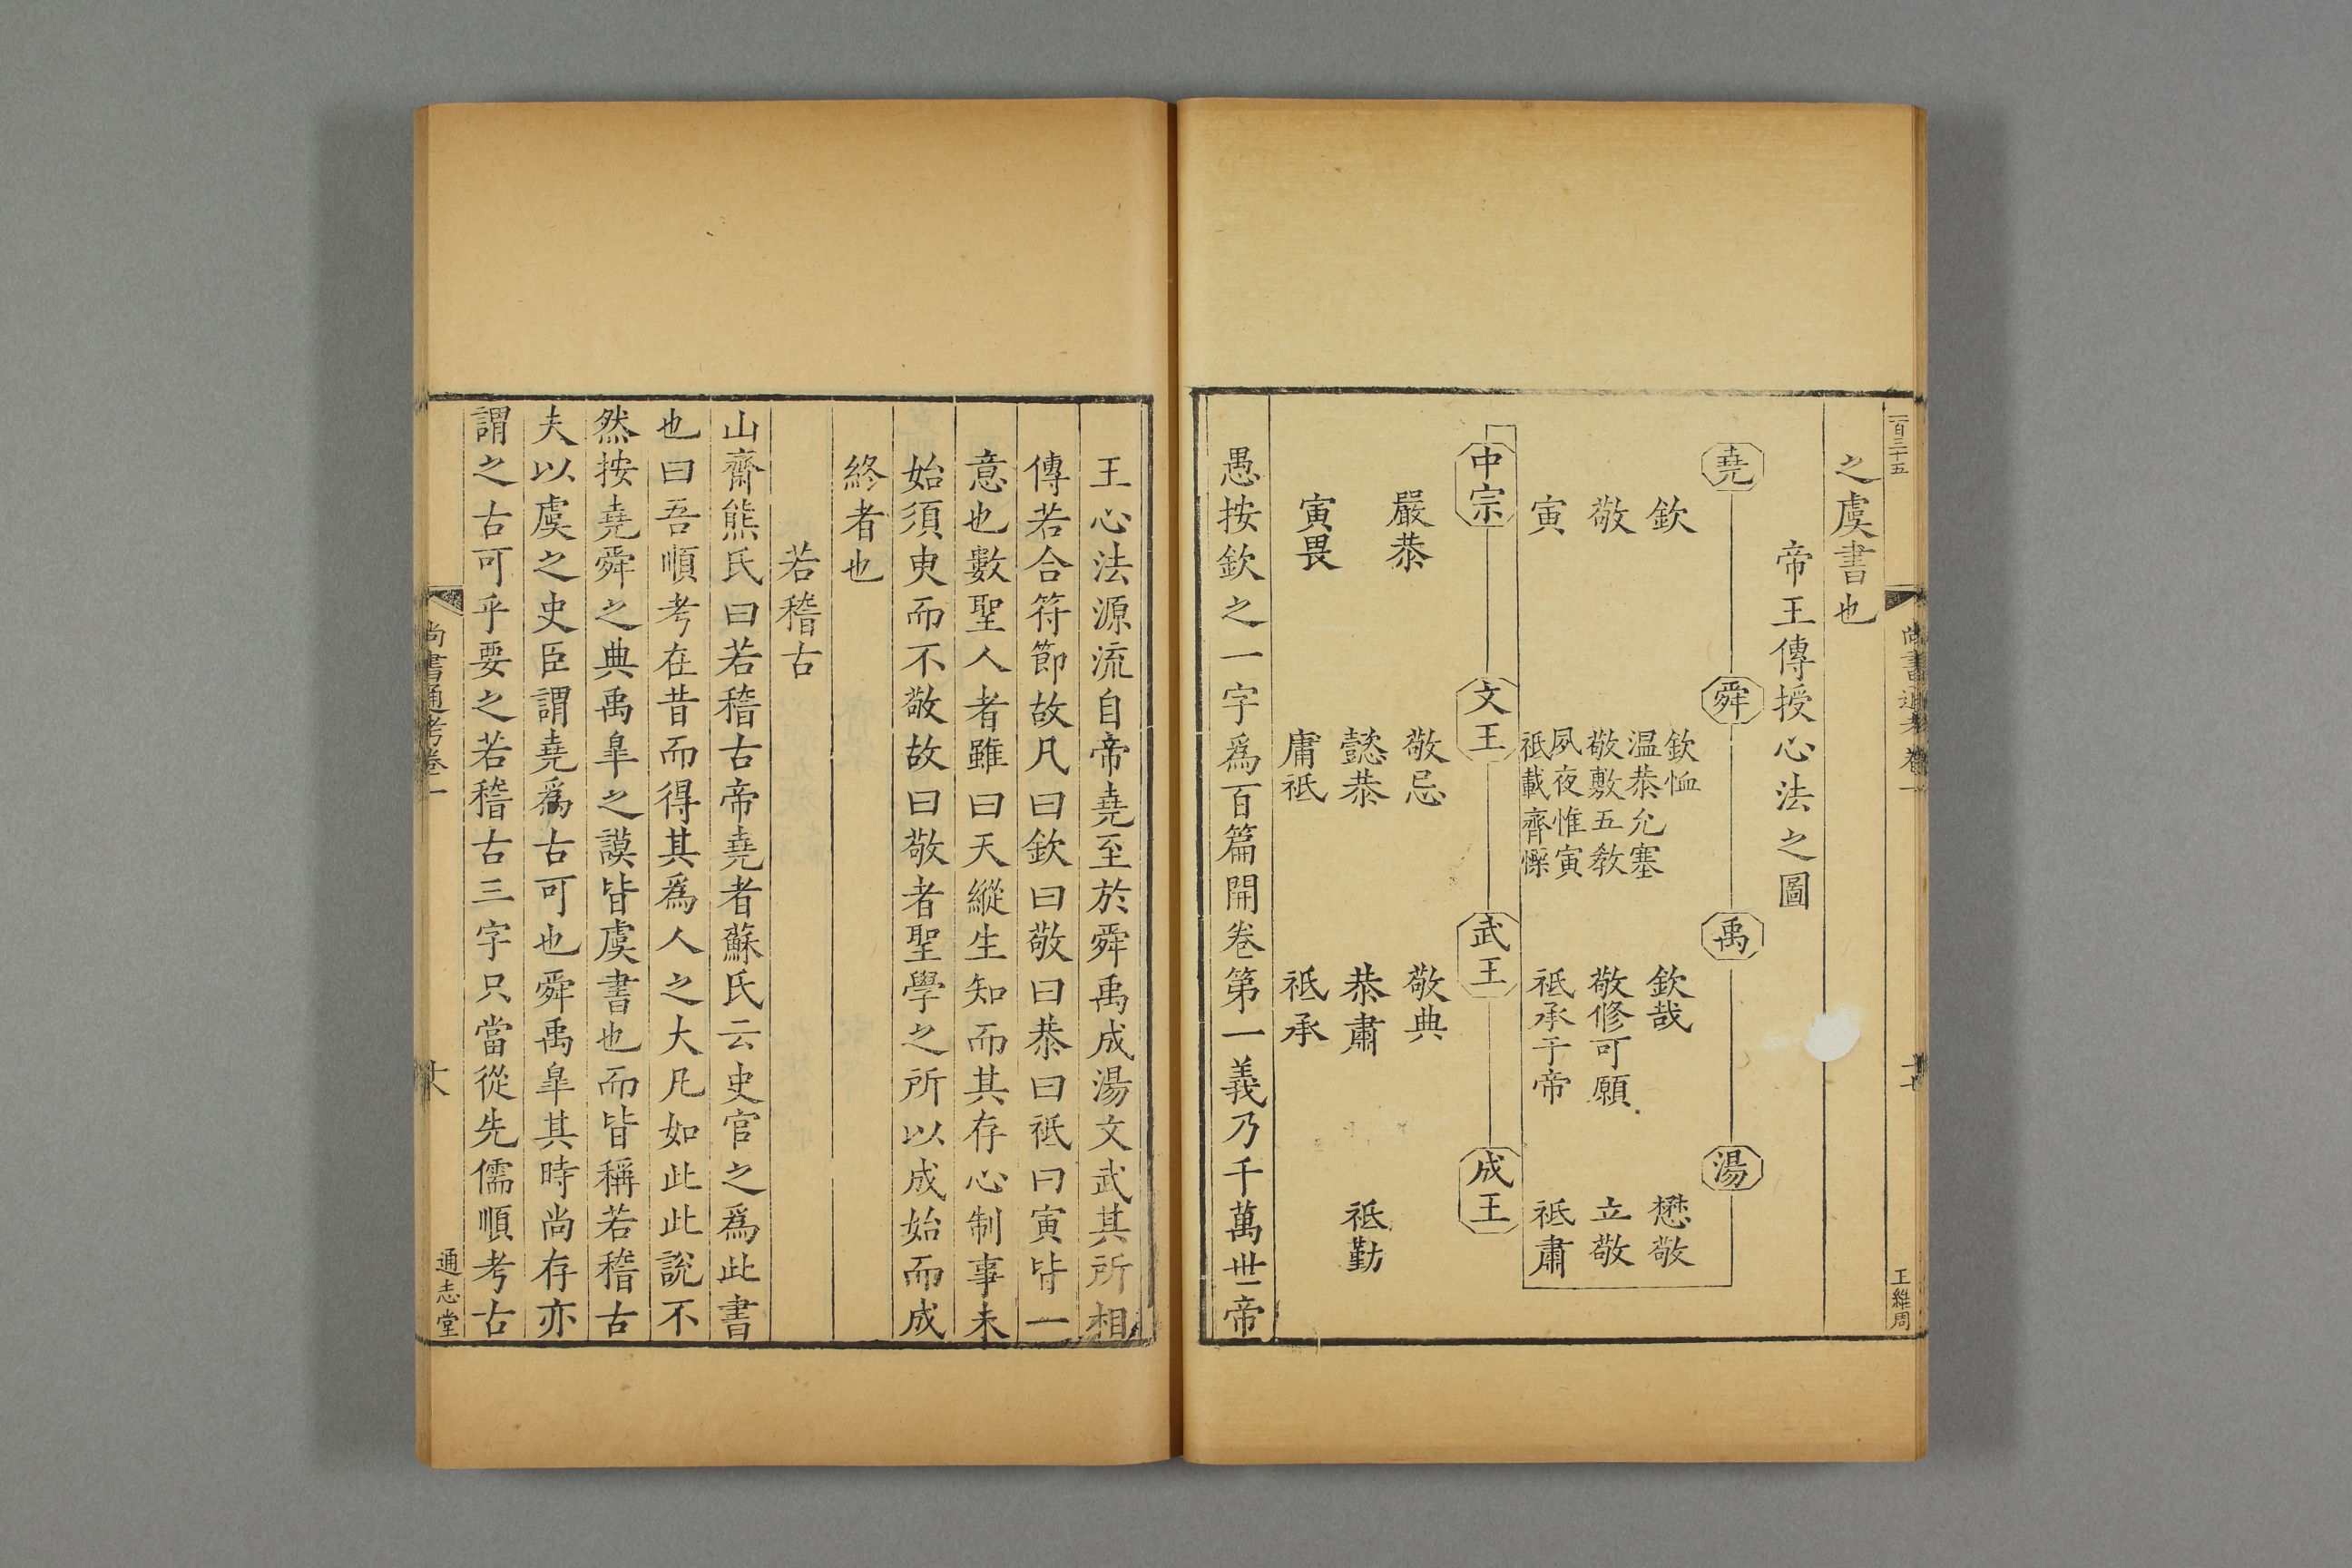 一百三十五
尚書通考卷一
十七
王維周
之虞書也
帝王傳授心法之圖
堯
舜
禹
湯
欽
敬
寅
欽恤
温恭允塞
敬敷五教
夙夜惟寅
祗載齊慄
欽哉
敬修可願
祗承于帝
懋敬
立敬
祗肅
中宗
文王
武王
成王
嚴恭
寅畏
敬忌
懿恭
庸祗
敬典
恭肅
祗承
祗勤
愚按欽之一字爲百篇開卷第一義乃千萬世帝
王心法源流自帝堯至於舜禹成湯文武其所相
傳若合符節故凡曰欽曰敬曰恭曰祗曰寅皆一
意也數聖人者雖曰天縱生知而其存心制事未
始須臾而不敬故曰敬者聖學之所以成始而成
終者也
若稽古
山齋熊氏曰若稽古帝堯者蘇氏云史官之爲此書
也曰吾順考在昔而得其爲人之大凡如此此說不
然按堯舜之典禹臯之謨皆虞書也而皆稱若稽古
夫以虞之史臣謂堯爲古可也舜禹臯其時尚存亦
謂之古可乎要之若稽古三字只當從先儒順考古
尚書通考卷一
通志堂